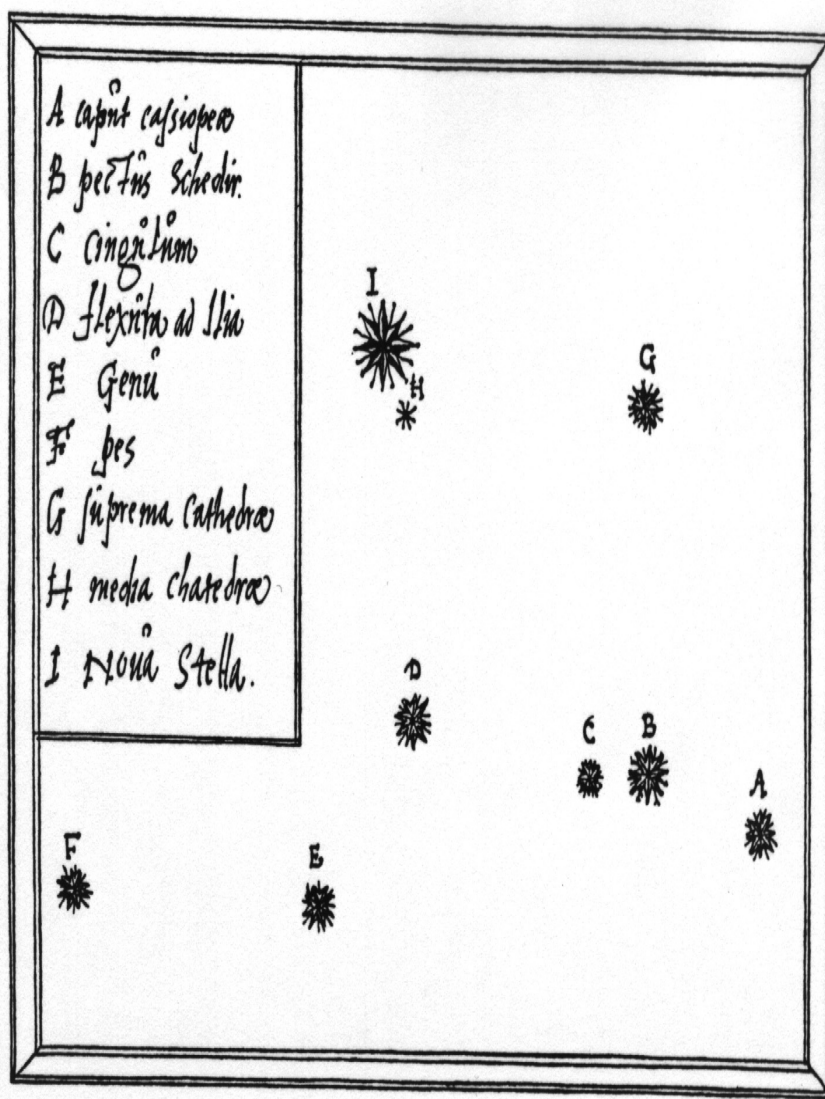 A capůt cassiopeæ
B pectůs Schedir.
C cingůlům
D flexůra ad Ilia
E Genů
F pes
G sůprema Cathedræ
H media chatedræ
I Noua Stella.
I
G
H
D
C
B
A
F
E